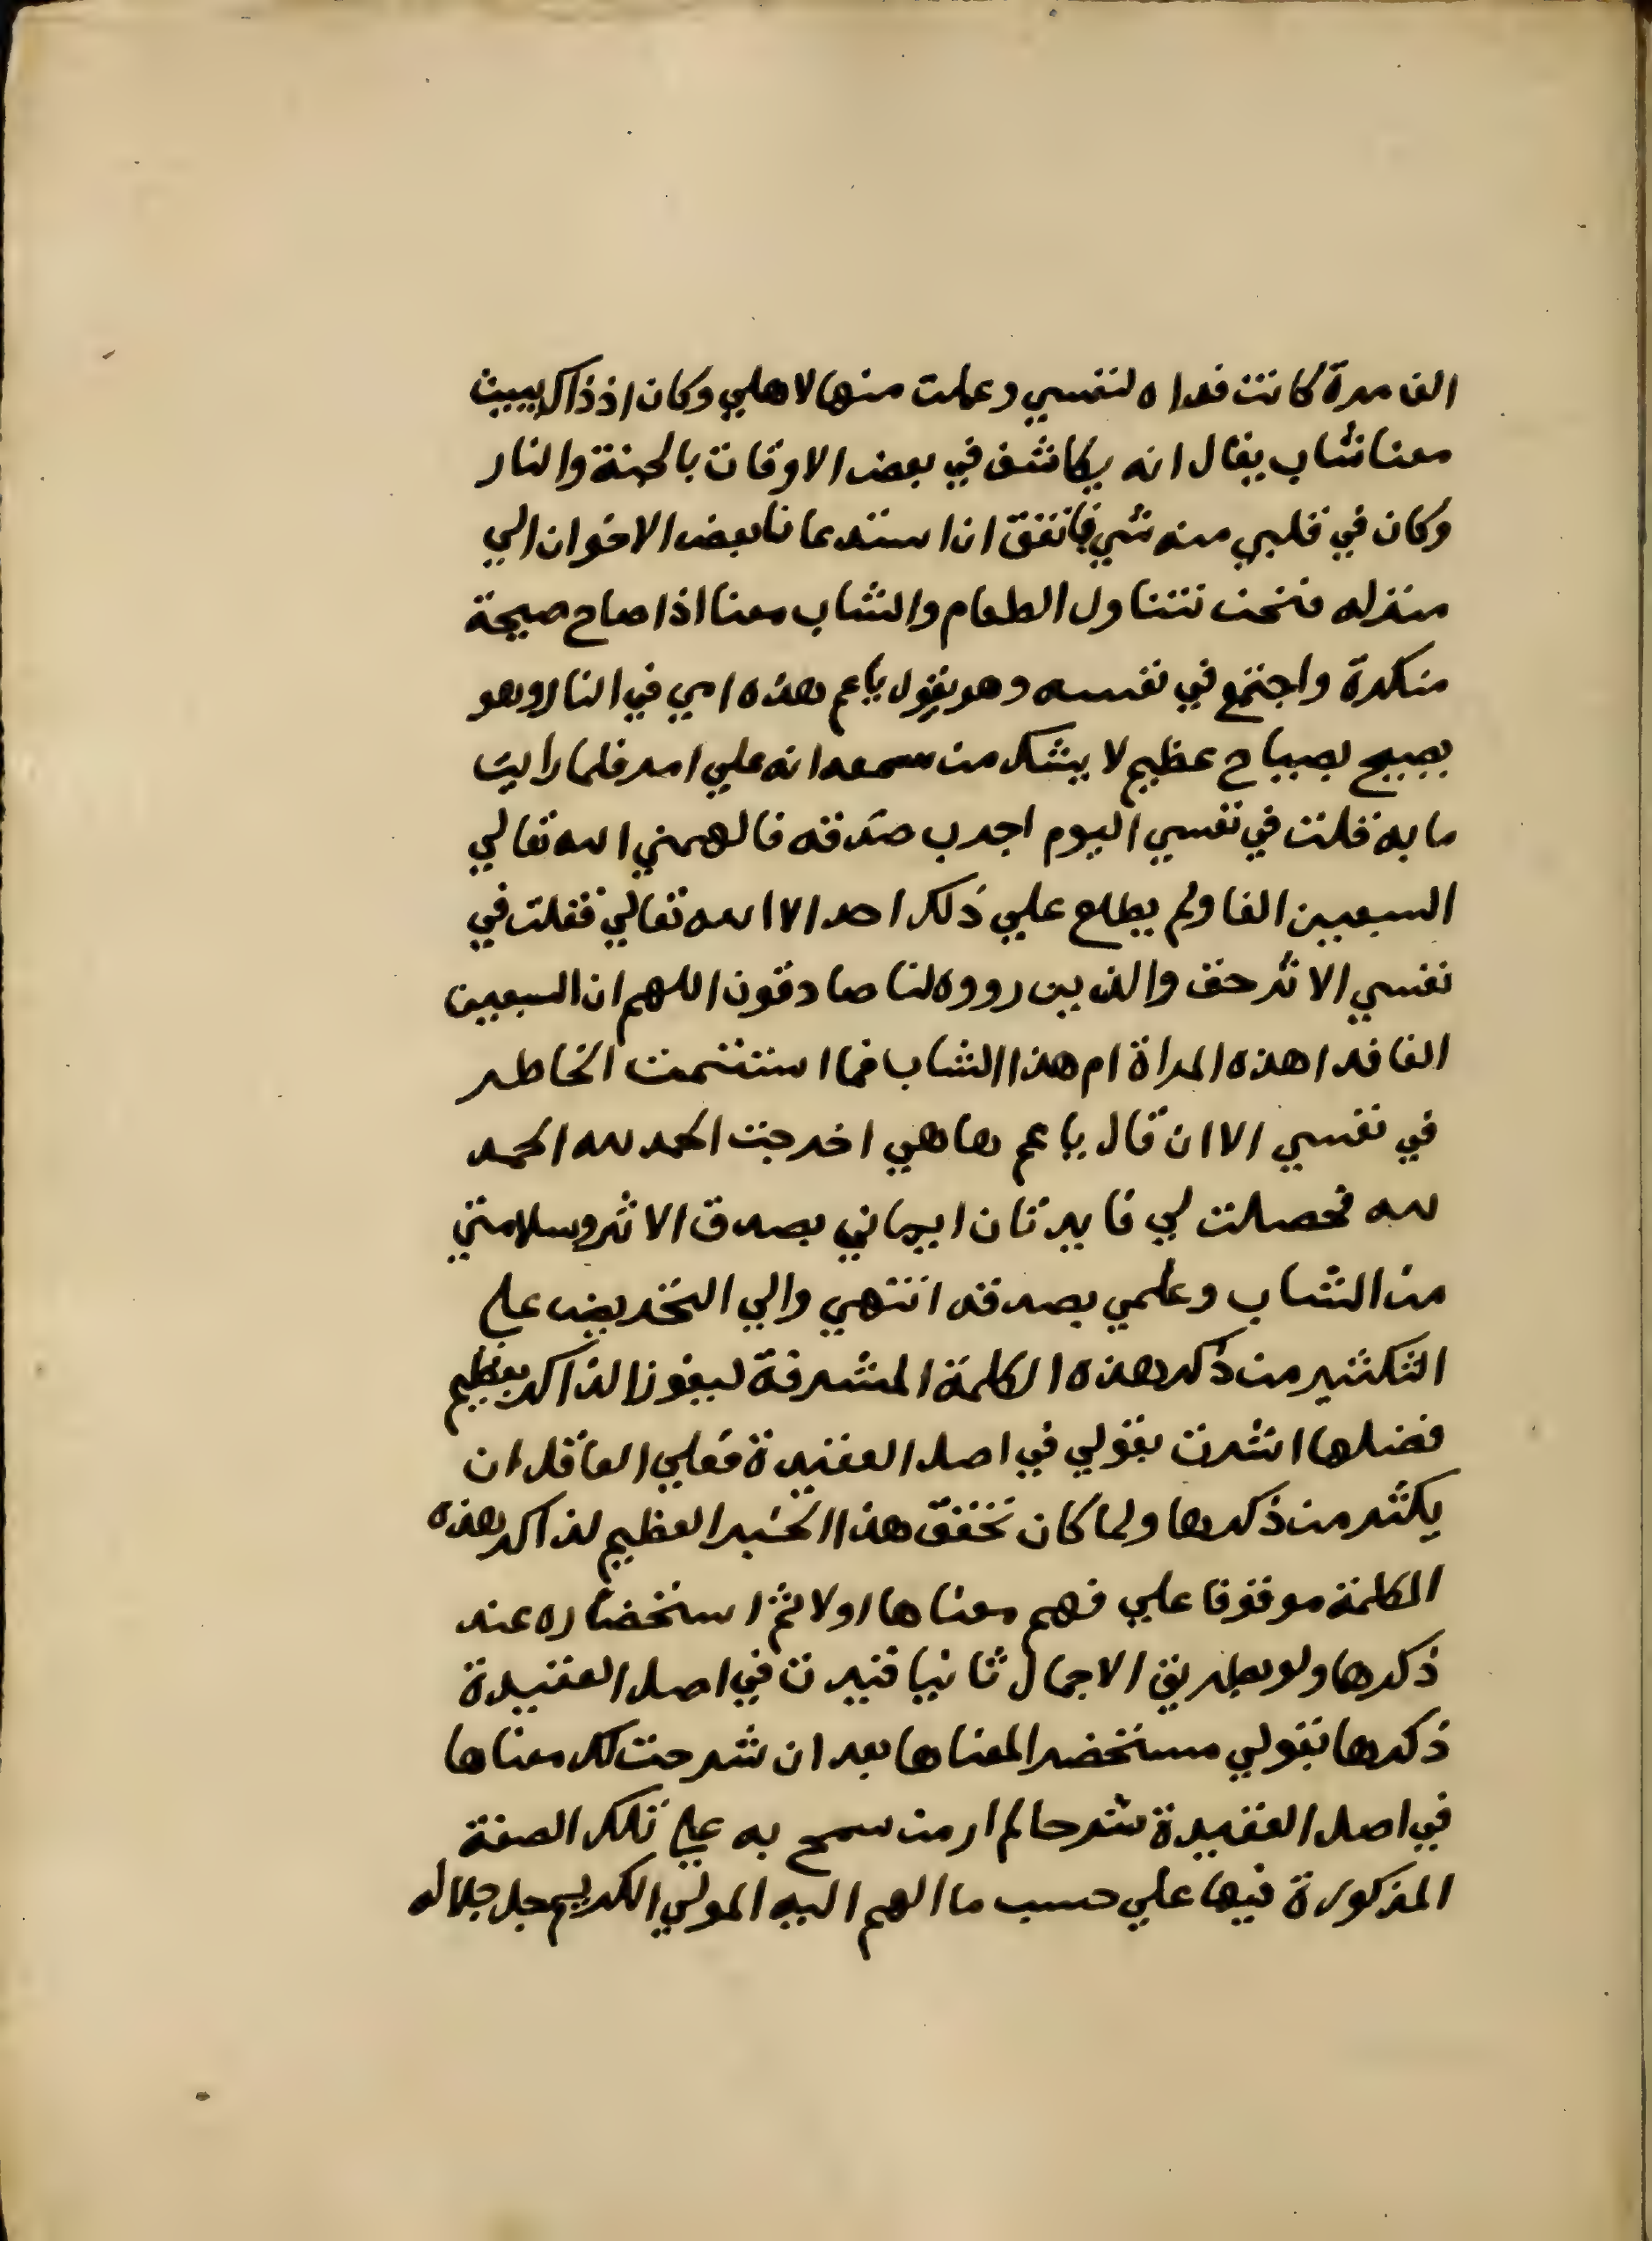 الف مرة كانت فداه لنفسي وعملت منها لاهلي وكان اذ ذاك يبيت
معنا شاب يقال انه يكاشف في بعض الاوقات بالجنة والنار
وكان في قلبي منه شي فاتفق ان استدعانا بعض الاخوان الي
منزله فنحن نتناول الطعام والشاب معنا اذا صاح صيحة
منكرة واجتمع في نفسه وهو يقول يا عم هذه امي في النار وهو
يصيح بصياح عظيم لا يشك من سمعه انه علي امر فلما رايت
ما به قلت في نفسي اليوم اجرب صدقه فالهمني الله تعالي
السبعين الفا ولم يطلع علي ذلك احد الا الله تعالي فقلت في
نفسي الاثر حق والذين رووه لنا صادقون اللهم ان السبعين
الفا فدا هذه المراة ام هذا الشاب فما استتممت الخاطر
في نفسي الا ان قال يا عم ها هي اخرجت الحمد لله الحمد
لله فحصلت لي فايدتان ايماني بصدق الاثر وسلامتي
من الشاب وعلمي بصدقه انتهي والي التحريض علي
التكثير من ذكر هذه الكلمة المشرفة ليفوز الذاكر بعظيم
فضلها اشرت بقولي في اصل العقيدة فعلي العاقل ان
يكثر من ذكرها ولما كان تحقق هذا الخير العظيم لذاكر هذه
الكلمة موقوفا علي فهم معناها اولا ثم استحضاره عند
ذكرها ولو بطريق الاجمال ثانيا قيدت في اصل العقيدة
ذكرها بقولي مستحضرا لمعناها بعد ان شرحت لك معناها
في اصل العقيدة شرحا لم ار من سمح به علي تلك الصفة
المذكورة فيها علي حسب ما الهم اليه المولي الكريم جل جلاله